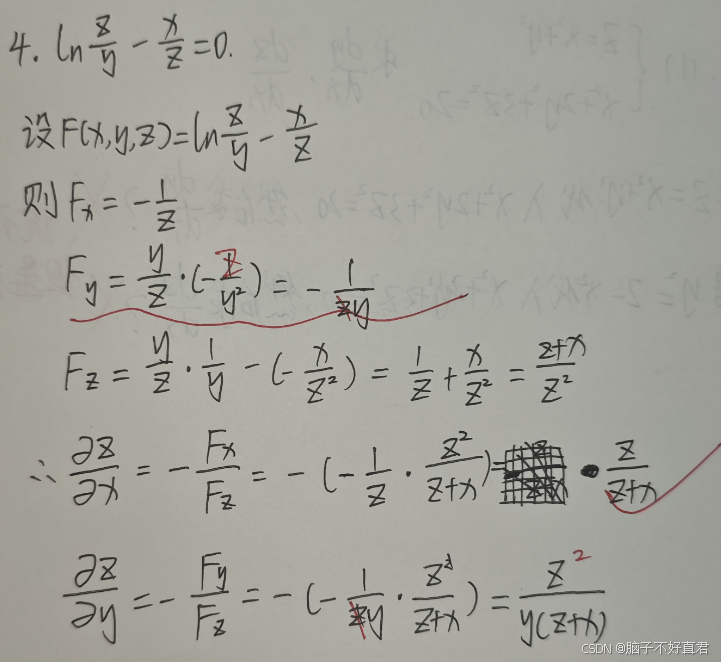 4. ln z/y - x/z = 0.
设F(x,y,z) = ln z/y - x/z
则 Fx = - 1/z
Fy = y/z · (- z/y²) = - 1/y
Fz = y/z · 1/y - (- x/z²) = 1/z + x/z² = (z+x)/z²
∴ ∂z/∂x = - Fx/Fz = - (- 1/z · z²/(z+x)) = z/(z+x)
∂z/∂y = - Fy/Fz = - (- 1/y · z²/(z+x)) = z²/(y(z+x))
CSDN @脑子不好直君